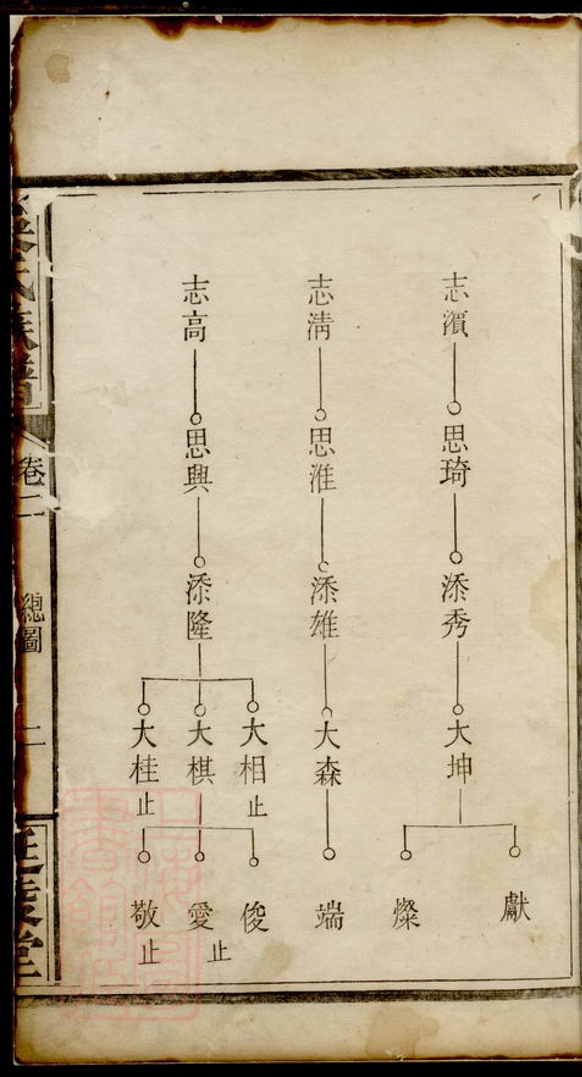 志濵
思琦
添秀
大坤
獻
燦
志清
思淮
添雄
大森
端
志高
思興
添隆
大相止
大棋
大桂止
俊
愛止
敬止
氏族譜
卷二
總圖
二